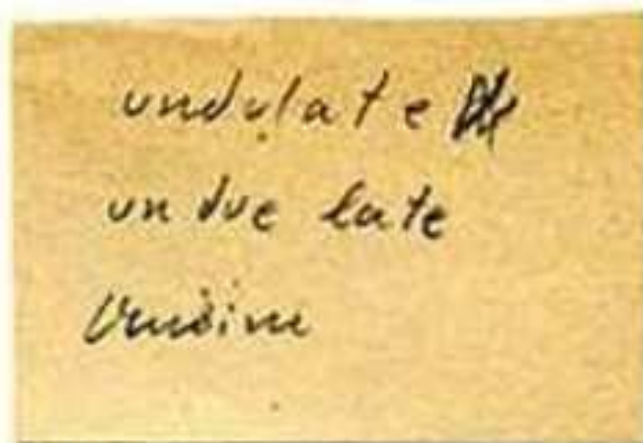 undulate
undue late
Undine